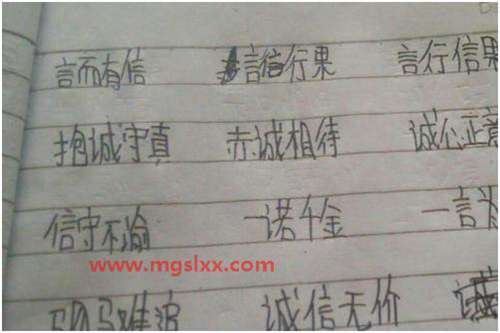 言而有信 言信行果 言行信果
抱诚守真 赤诚相待 诚心正意
信守不渝 一诺千金 一言
www.mgslxx.com
驷马难追 诚信无价